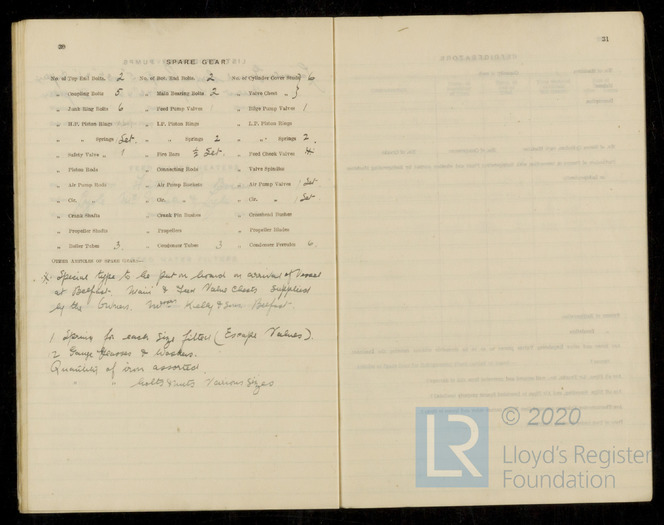 30
SPARE GEAR
No. of Top End Bolts. 2 No. of Bot. End Bolts. 2 No. of Cylinder Cover Studs 6
„ Coupling Bolts 5 „ Main Bearing Bolts 2 „ Valve Chest „ }
„ Junk Ring Bolts 6 „ Feed Pump Valves 1 „ Bilge Pump Valves 1
„ H.P. Piston Rings „ I.P. Piston Rings „ L.P. Piston Rings
„ „ Springs Set. „ „ Springs 2 „ „ Springs 2
„ Safety Valve „ 1 „ Fire Bars ½ Set. „ Feed Check Valves ※
„ Piston Rods „ Connecting Rods „ Valve Spindles
„ Air Pump Rods „ Air Pump Buckets „ Air Pump Valves 1 Set
„ Cir. „ „ Cir. „ „ Cir. „ 1 Set
„ Crank Shafts „ Crank Pin Bushes „ Crosshead Bushes
„ Propeller Shafts „ Propellers „ Propeller Blades
„ Boiler Tubes 3 „ Condenser Tubes 3 „ Condenser Ferrules 6
OTHER ARTICLES OF SPARE GEAR:—
※ Special type to be put on board on arrival of Vessel
at Belfast. Main & Aux Valve Chests Supplied
by the Owners. Kelly & Sons Belfast.
1 Spring for each Size fitted (Escape Valves).
2 Gauge Glasses & Washers.
Quantities of iron assorted.
„ „ bolts & nuts Various Sizes
31
LR
© 2020
Lloyd's Register
Foundation